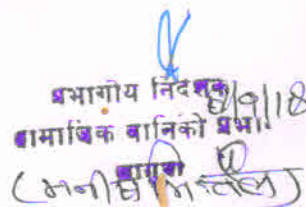 प्रभागीय निदेशक
सामाजिक वानिकी प्रभाग
आगरा
(मनीष मित्तल)